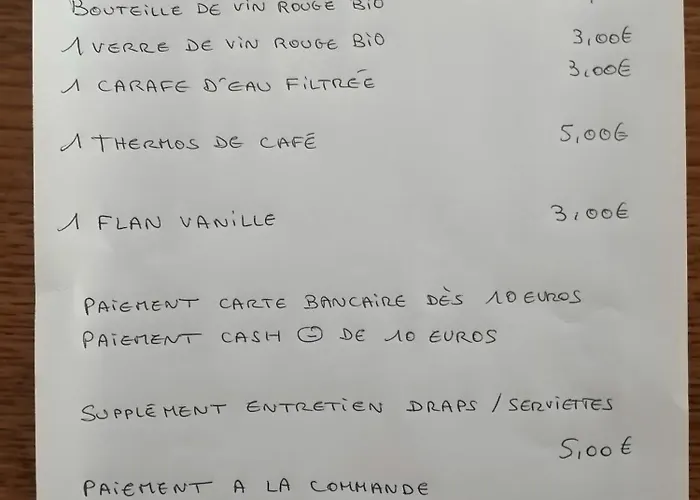 BOUTEILLE DE VIN ROUGE BIO
1 VERRE DE VIN ROUGE BIO 3,00€
1 CARAFE D'EAU FILTRÉE 3,00€
1 THERMOS DE CAFÉ 5,00€
1 FLAN VANILLE 3,00€
PAIEMENT CARTE BANCAIRE DÈS 10 EUROS
PAIEMENT CASH ⊖ DE 10 EUROS
SUPPLÉMENT ENTRETIEN DRAPS / SERVIETTES
5,00€
PAIEMENT A LA COMMANDE